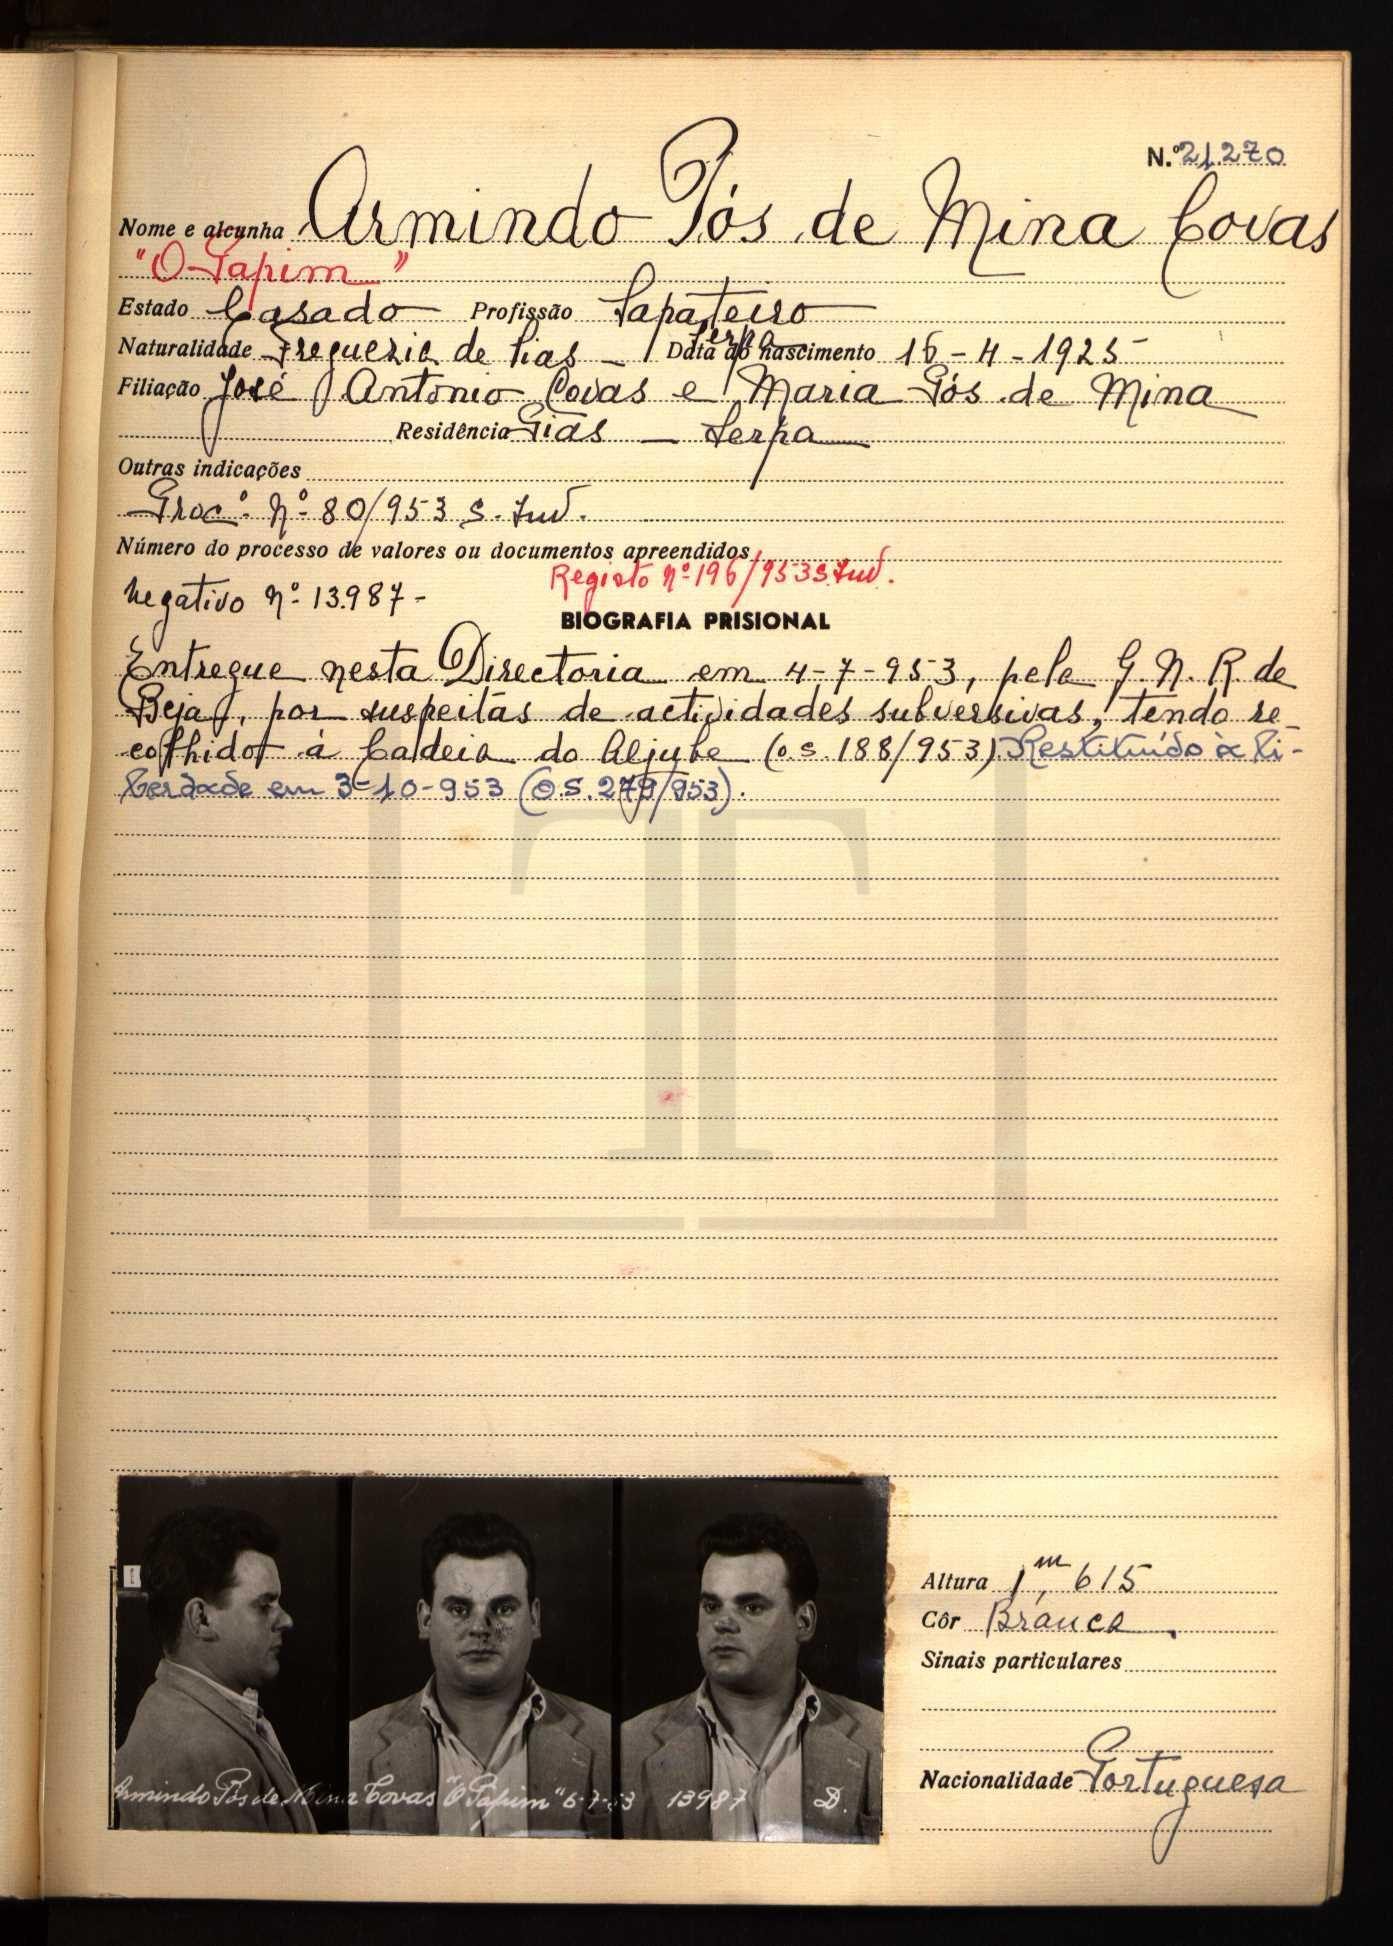 N.º 21.270
Nome e alcunha Armindo Pós de Mina Covas
"O Papim"
Estado Casado Profissão Sapateiro
Naturalidade Freguezia de Pias - Serpa Data do nascimento 16-4-1925
Filiação José Antonio Covas e Maria Pós de Mina
Residência Pias - Serpa
Outras indicações
Procº. Nº. 80/953 S. Ind.
Número do processo de valores ou documentos apreendidos
Registo nº 196/953 S. Ind.
Negativo Nº. 13.987-
BIOGRAFIA PRISIONAL
Entregue nesta Directoria em 4-7-953, pela G. N. R. de
Beja, por suspeitas de actividades subversivas, tendo re-
colhido á Cadeia do Aljube (o.s. 188/953). Restituído à li-
berdade em 3-10-953 (O.S. 279/953).
Armindo Pós de Mina Covas "O Papim" 6-7-53 13987 D.
Altura 1m,615
Côr Branca.
Sinais particulares
Nacionalidade Portuguesa